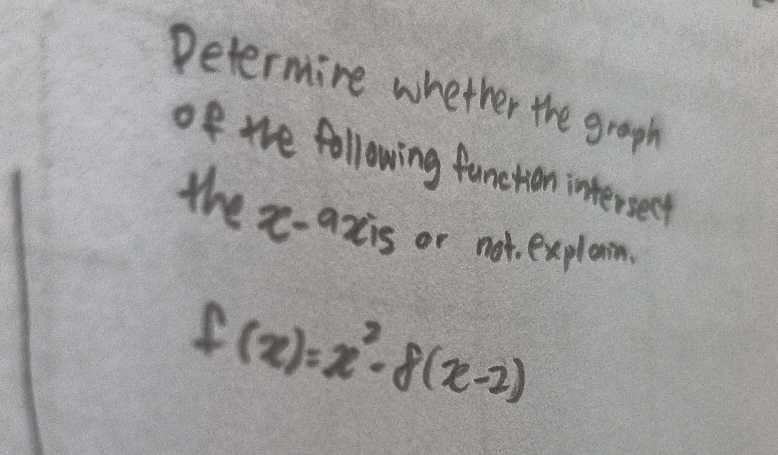 Determine whether the graph
of the following function intersect
the x-axis or not. explain.
f(x)=x²-8(x-2)